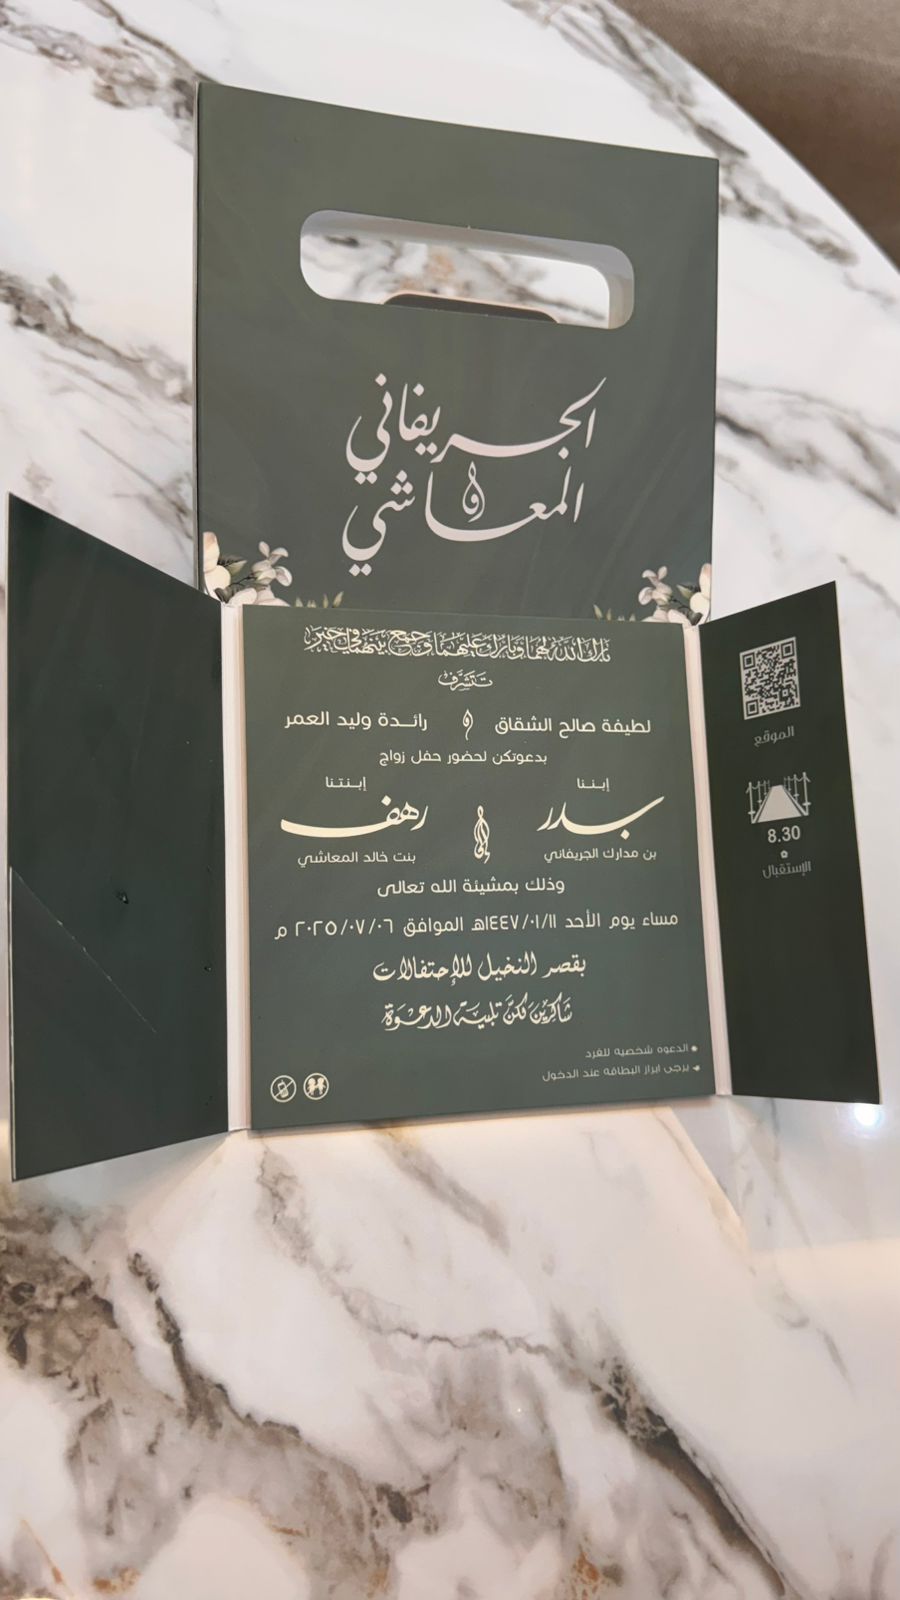 الجريفاني
و
المعاشي
بارك الله لهما وبارك عليهما وجمع بينهما في خير
تتشرف
لطيفة صالح الشقاق و رائـدة وليد العمر
بدعوتكن لحضور حفل زواج
إبـنـنا إبـنـتـنا
بـدر و رهف
بن مدارك الجريفاني بنت خالد المعاشي
وذلك بمشيئة الله تعالى
مساء يوم الأحد ١٤٤٧/٠١/١١هـ الموافق ٢٠٢٥/٠٧/٠٦ م
بقصر النخيل للإحتفالات
شَاكِرِينَ لَكُنَّ تلبيـة الدعـوَة
الدعوه شخصيه للفرد
يرجى ابراز البطاقه عند الدخول
الموقع
8.30
الإستقبال